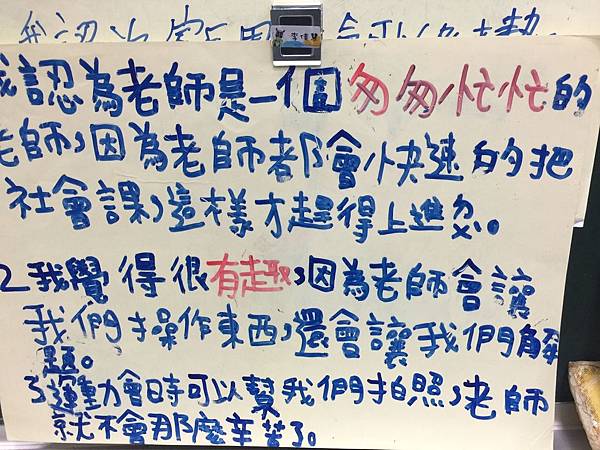 我認為
李
我認為老師是一個匆匆忙忙的
老師，因為老師都會快速的把
社會課，這樣才趕得上進度。
2.我覺得很有趣，因為老師會讓
我們操作東西，還會讓我們解
題。
3.運動會時可以幫我們拍照，老師
就不會那麼辛苦了。